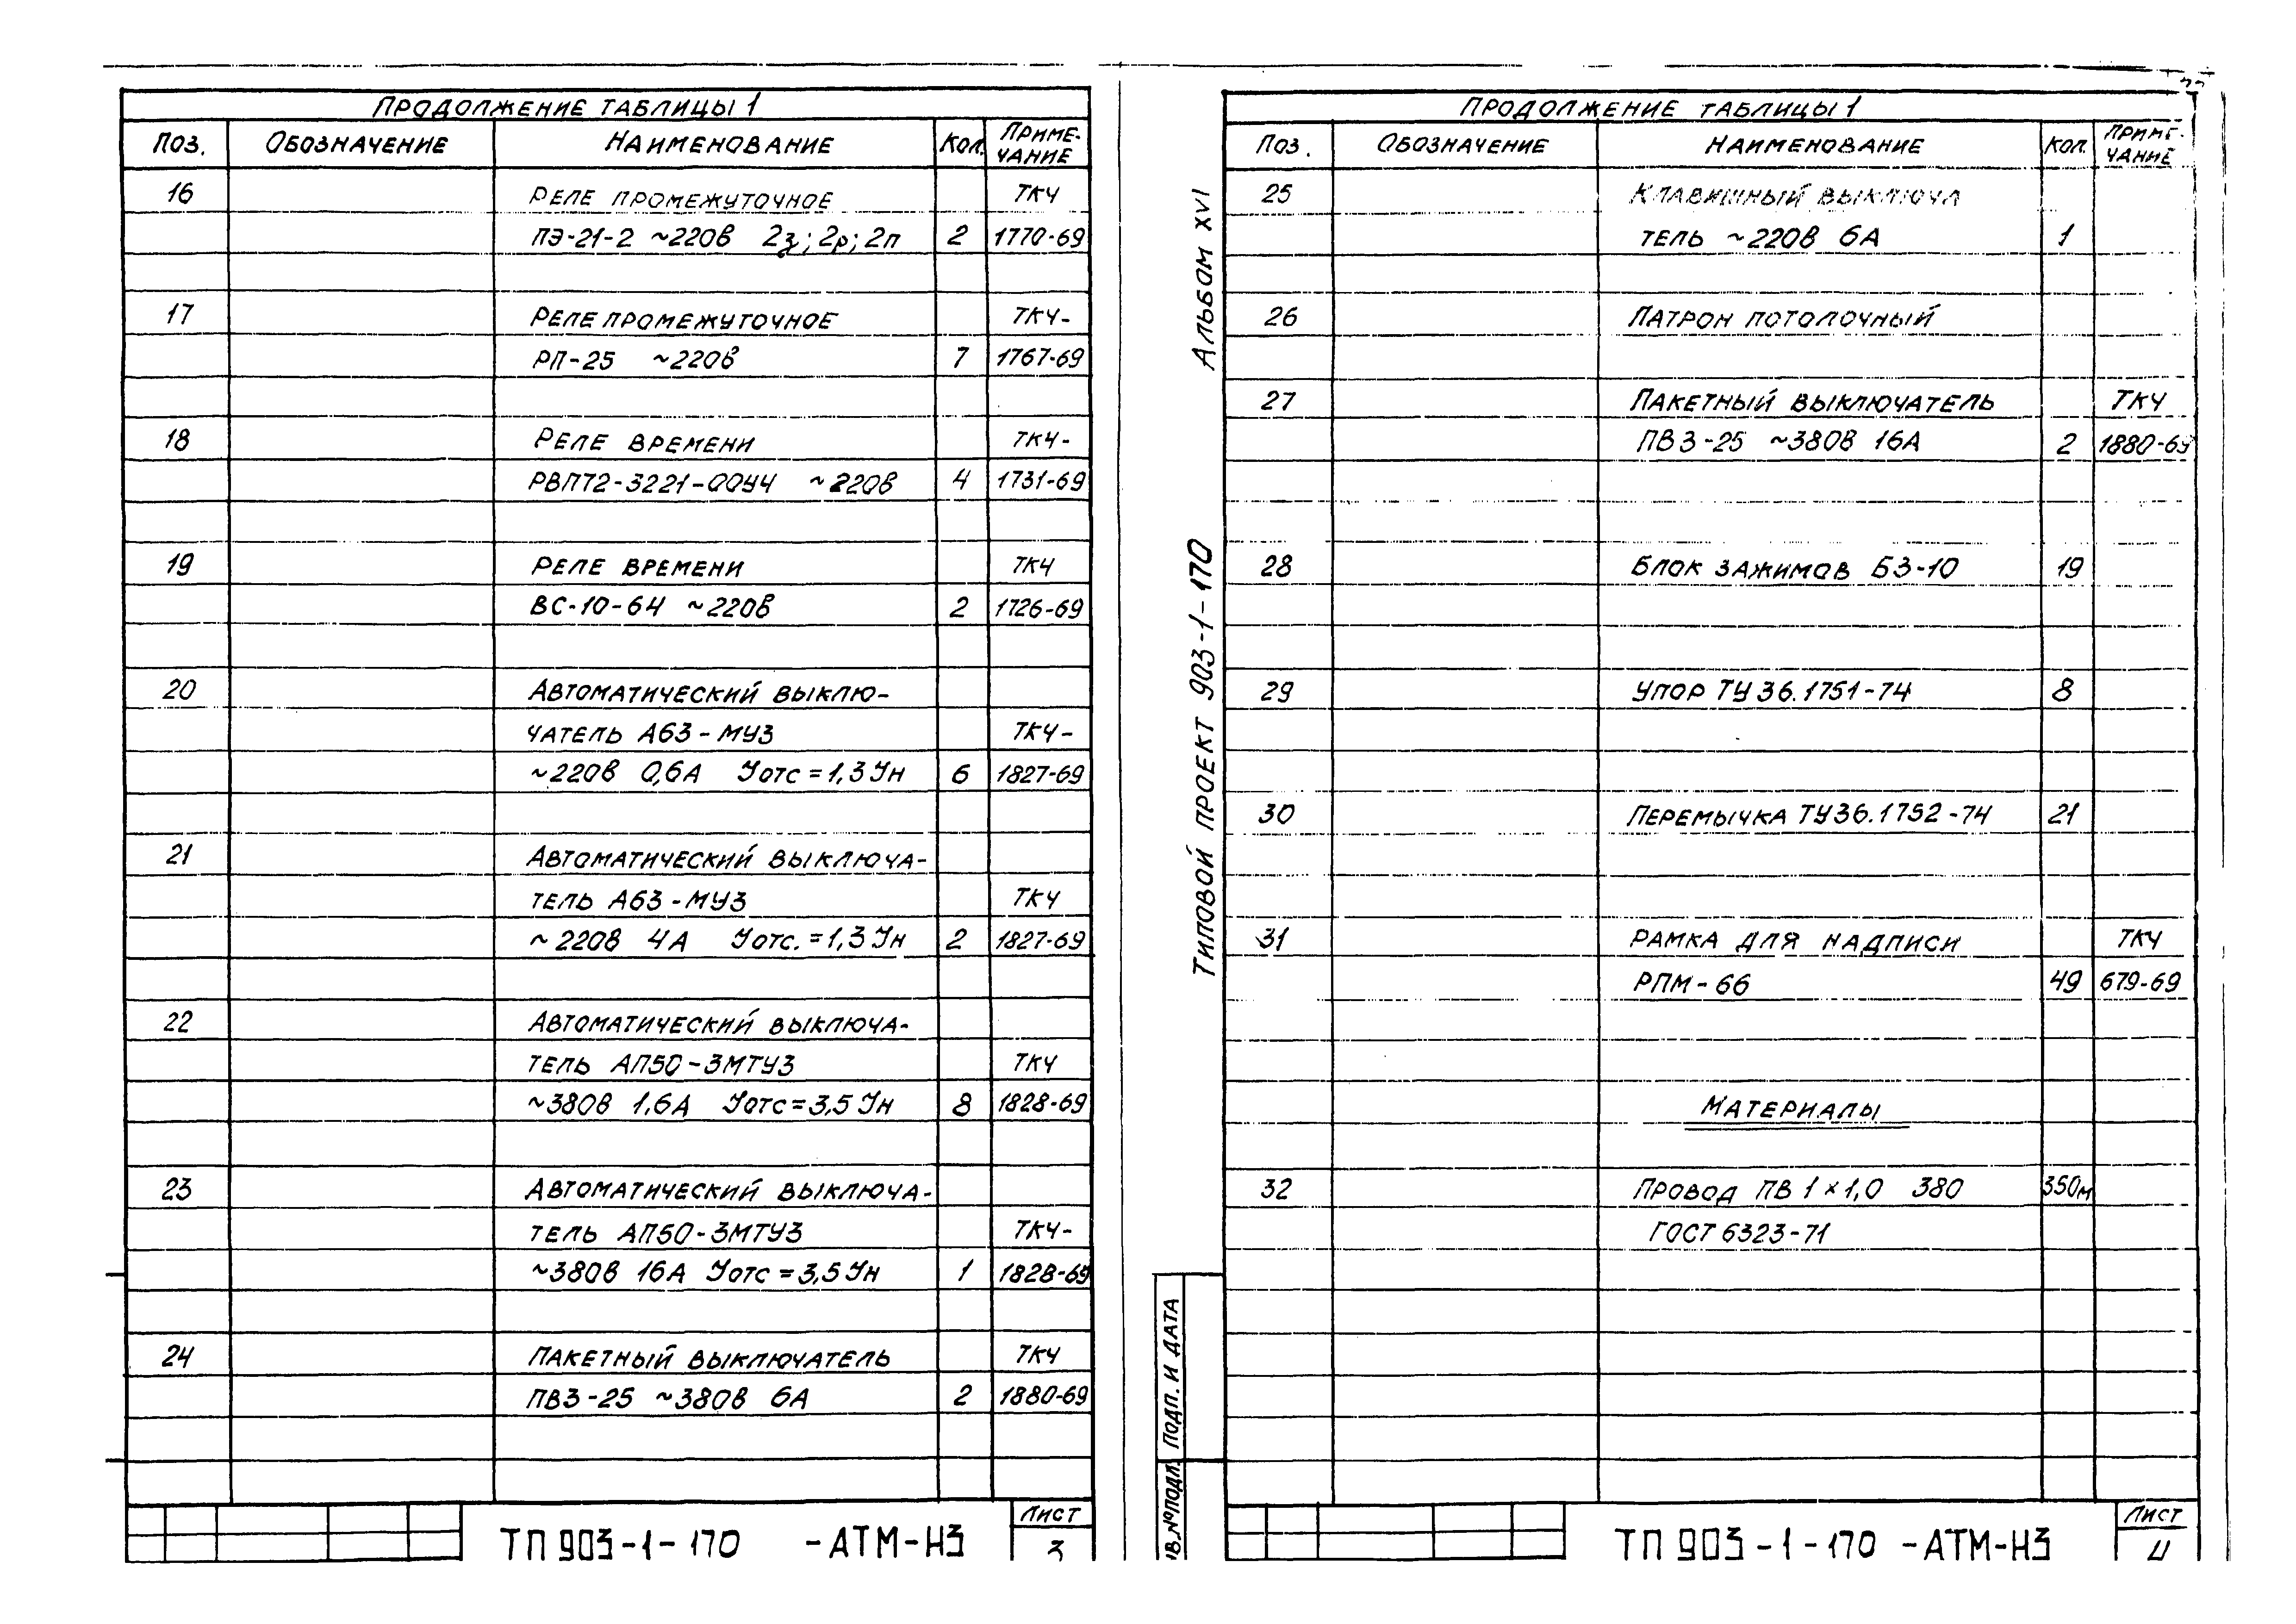 ПРОДОЛЖЕНИЕ ТАБЛИЦЫ 1
ПОЗ. ОБОЗНАЧЕНИЕ НАИМЕНОВАНИЕ КОЛ. ПРИМЕ-
ЧАНИЕ
16 РЕЛЕ ПРОМЕЖУТОЧНОЕ ТКЧ
ПЭ-21-2 ~220В 2з; 2р; 2п 2 1770-69
17 РЕЛЕ ПРОМЕЖУТОЧНОЕ ТКЧ-
РП-25 ~220В 7 1767-69
18 РЕЛЕ ВРЕМЕНИ ТКЧ-
РВПТ2-3221-00У4 ~220В 4 1731-69
19 РЕЛЕ ВРЕМЕНИ ТКЧ
ВС-10-64 ~220В 2 1726-69
20 АВТОМАТИЧЕСКИЙ ВЫКЛЮ-
ЧАТЕЛЬ А63-МУ3 ТКЧ-
~220В 0,6А Уотс=1,3Ун 6 1827-69
21 АВТОМАТИЧЕСКИЙ ВЫКЛЮЧА-
ТЕЛЬ А63-МУ3 ТКЧ
~220В 4А Уотс.=1,3Ун 2 1827-69
22 АВТОМАТИЧЕСКИЙ ВЫКЛЮЧА-
ТЕЛЬ АП50-3МТУ3 ТКЧ
~380В 1,6А Уотс=3,5Ун 8 1828-69
23 АВТОМАТИЧЕСКИЙ ВЫКЛЮЧА-
ТЕЛЬ АП50-3МТУ3 ТКЧ-
~380В 16А Уотс=3,5Ун 1 1828-69
24 ПАКЕТНЫЙ ВЫКЛЮЧАТЕЛЬ ТКЧ
ПВ3-25 ~380В 6А 2 1880-69
ТП 903-1-170 -АТМ-Н3
ЛИСТ
3
АЛЬБОМ XVI
ТИПОВОЙ ПРОЕКТ 903-1-170
ПОДП. И ДАТА
ПРОДОЛЖЕНИЕ ТАБЛИЦЫ 1
ПОЗ. ОБОЗНАЧЕНИЕ НАИМЕНОВАНИЕ КОЛ. ПРИМЕ-
ЧАНИЕ
25 КЛАВИШНЫЙ ВЫКЛЮЧА
ТЕЛЬ ~220В 6А 1
26 ПАТРОН ПОТОЛОЧНЫЙ
27 ПАКЕТНЫЙ ВЫКЛЮЧАТЕЛЬ ТКЧ
ПВ3-25 ~380В 16А 2 1880-69
28 БЛОК ЗАЖИМОВ БЗ-10 19
29 УПОР ТУ36.1751-74 8
30 ПЕРЕМЫЧКА ТУ36.1752-74 21
31 РАМКА ДЛЯ НАДПИСИ ТКЧ
РПМ-66 49 679-69
МАТЕРИАЛЫ
32 ПРОВОД ПВ 1×1,0 380 350м
ГОСТ 6323-71
ТП 903-1-170 -АТМ-Н3
ЛИСТ
4